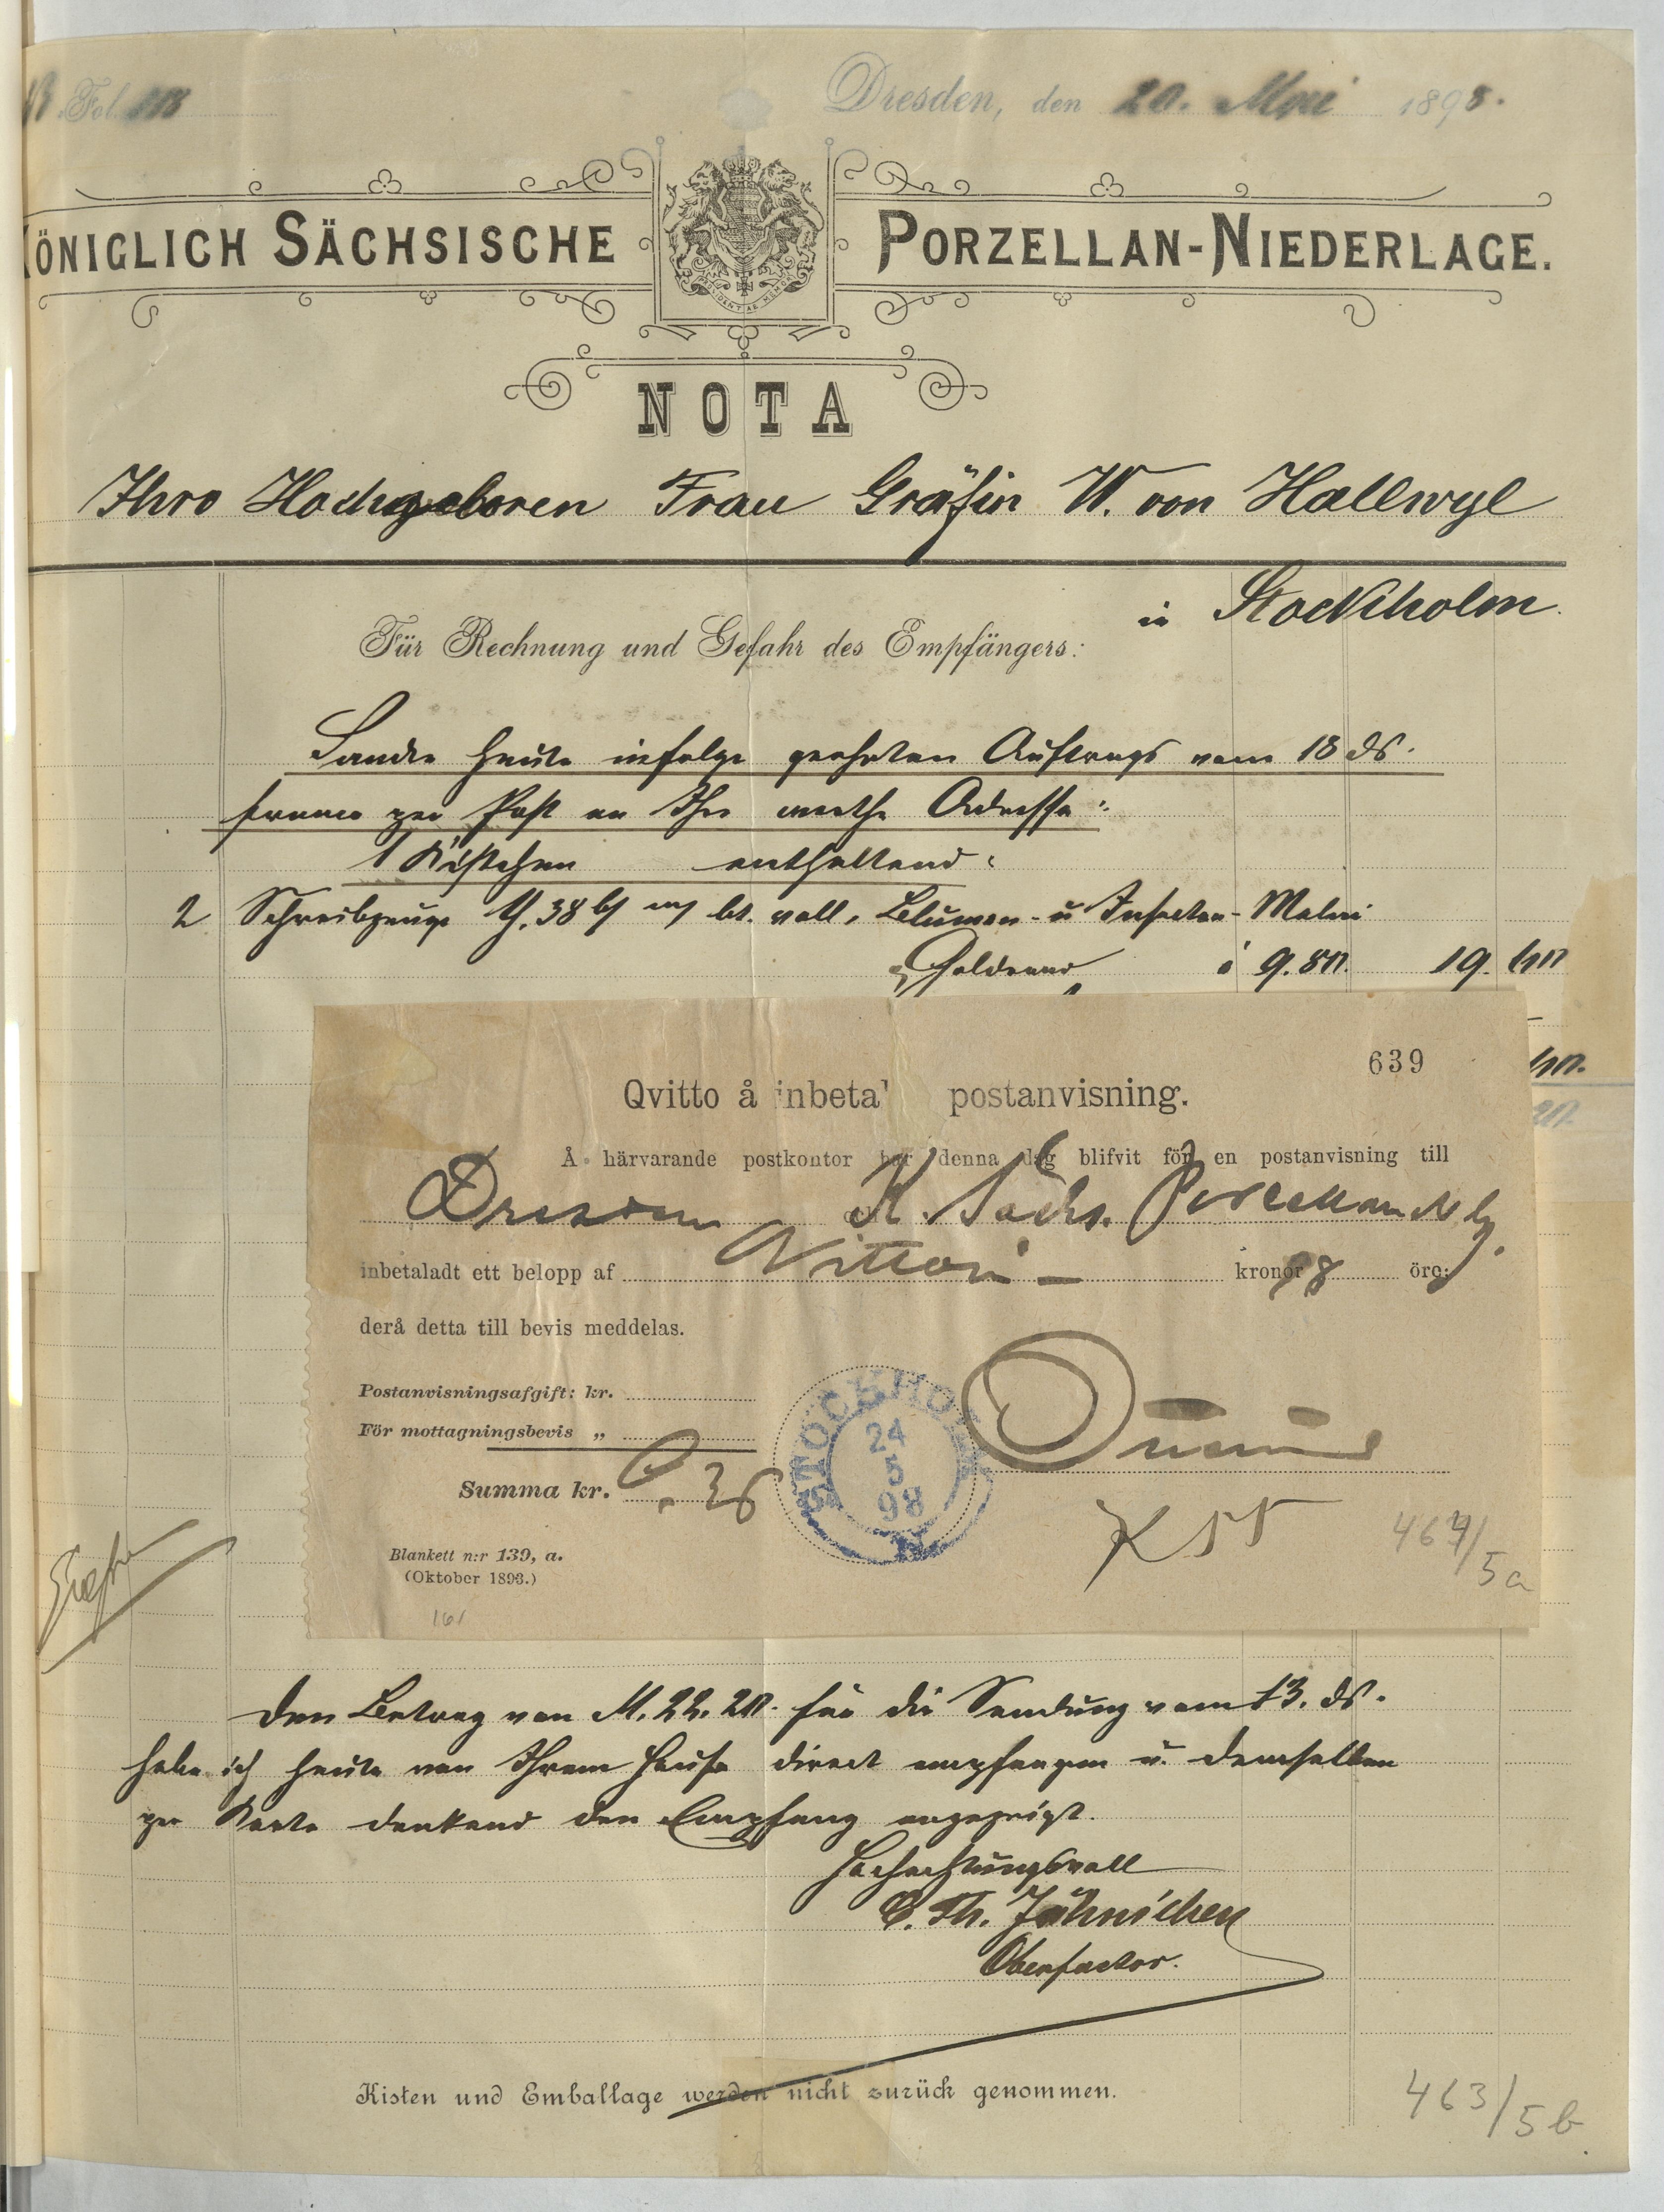 Fol.
Dresden, den 20. Mai 1898.
KÖNIGLICH SÄCHSISCHE PORZELLAN-NIEDERLAGE.
PROVIDENTIAE MEMOR
NOTA
Ihro Hochgeboren Frau Gräfin W. von Hallwyl
in Stockholm.
Für Rechnung und Gefahr des Empfängers:
Sandte heute infolge geehrten Auftrags vom 18 ds.
franco per Post an Ihre werthe Adresse:
1 Kistchen enthaltend:
2 Schreibzeuge Y. 38 bt. voll, Blumen- u Insecten-Malerei
Goldrand à 9.80. 19. 60
60.
20.
639
Qvitto å inbeta postanvisning.
Å härvarande postkontor har denna dag blifvit för en postanvisning till
Dresden K. Sächs. Porcellan
inbetaladt ett belopp af Nitton — kronor 98 öre;
derå detta till bevis meddelas.
Postanvisningsafgift: kr.
För mottagningsbevis „
Summa kr. 0.36
STOCKHOLM
24
5
98
N
K 55
464/5a
Blankett n:r 139, a.
(Oktober 1893.)
161
Den Betrag von M. 22.20. für die Sendung vom 13. ds.
habe ich heute von Ihrem Hause direct empfangen u. demselben
per Karte dankend den Empfang angezeigt.
Hochachtungsvoll
C. Th. Jähnichen
Oberfactor.
Kisten und Emballage werden nicht zurück genommen.
463/5b